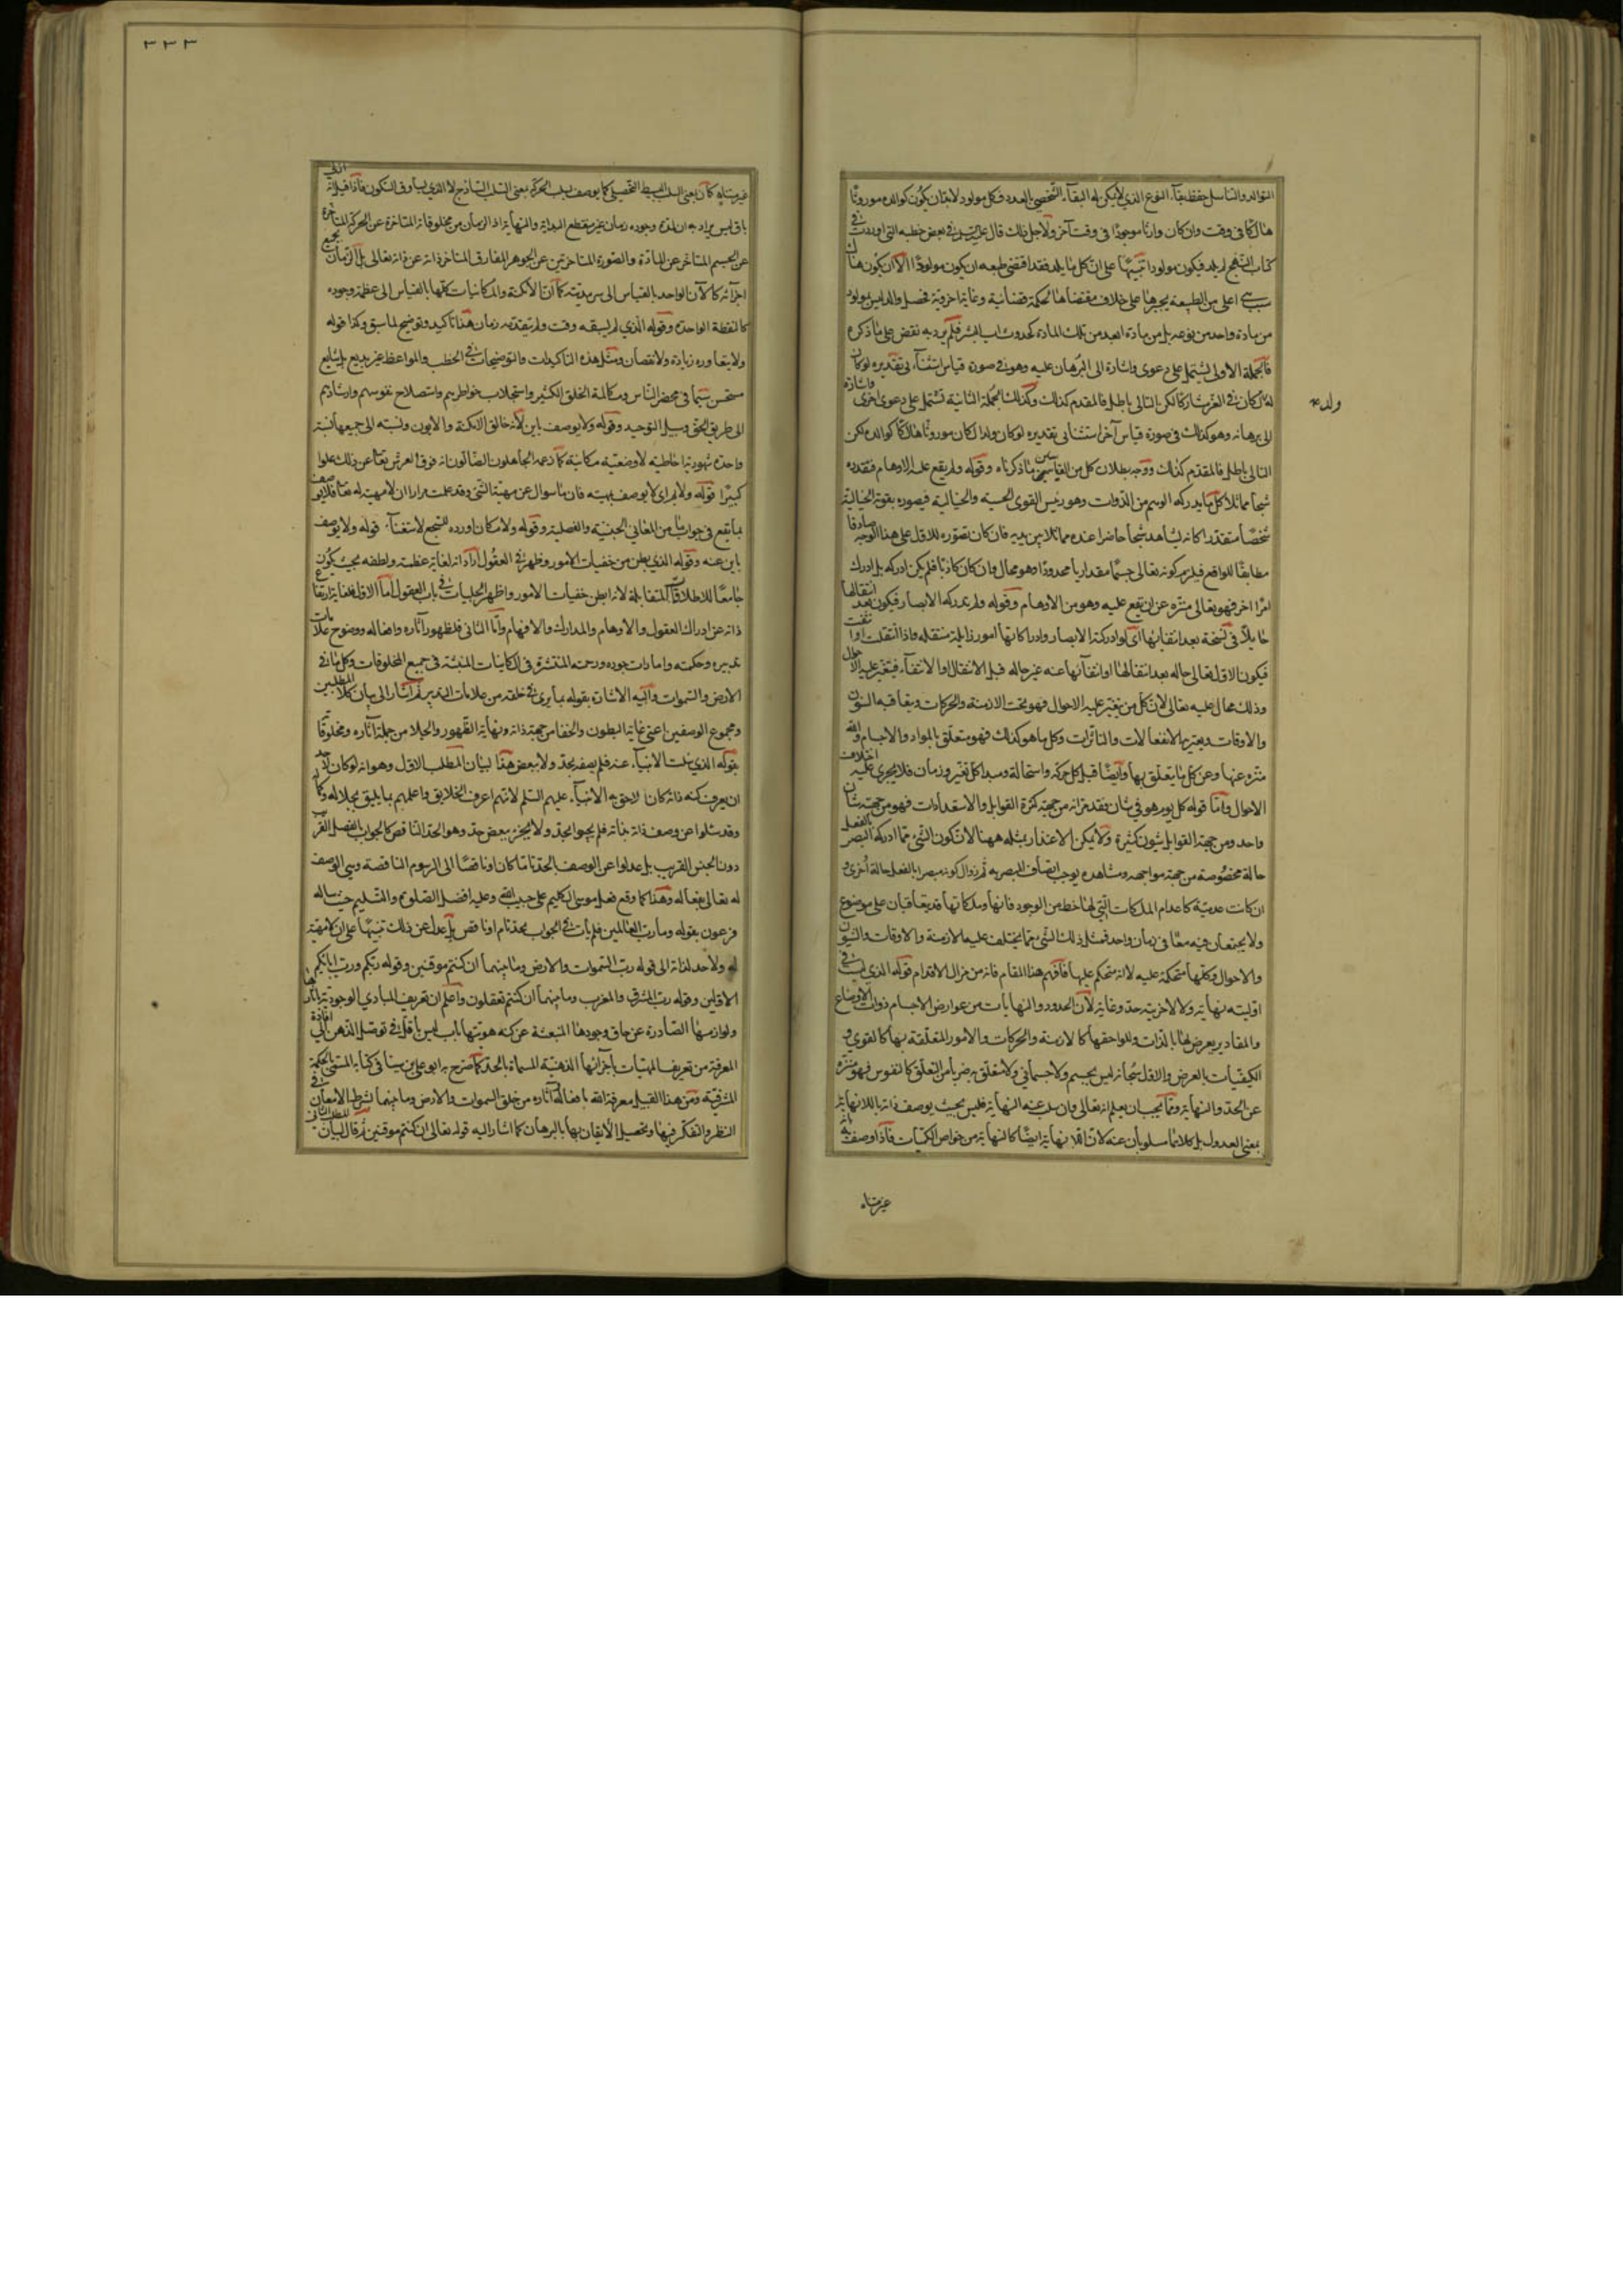 التوالد والتناسل حفظ بقاء النوع الذي لا يمكن له البقاء الشخصي بالعدد فكل مولود لابد ان يكون كوالده موروثا
هالكا في وقت وان كان وارثا موجودا في وقت آخر ولاجل ذلك قال في بعض خطبه التي اوردت في
كتاب النهج لم يلد فيكون مولودا تنبيها على ان كل ما يلد فقد اقتضى طبعه ان يكون مولودا الا ان يكون هناك
سبب اعلى من الطبيعة يجبرها على خلاف مقتضاها لحكمة قضائية وغاية اخروية فحصل والد ليس مولود
من مادة واحد من نوعه بل من مادة ابعد من تلك المادة كحدوث اب البشر فلم يرد به نقض على ما ذكره
فالجملة الاولى يشتمل على دعوى واشارة الى البرهان عليه وهو في صورة قياس استثنائي تقديره لو كان
له كان في العز مشاركا لكن التالي باطل فالمقدم كذلك وكذلك الجملة الثانية تشتمل على دعوى اخرى واشارة
ولد
الى برهانه وهو كذلك في صورة قياس آخر استثنائي تقديره لو كان والدا كان موروثا هالكا كوالده لكن
التالي باطل فالمقدم كذلك ووجه بطلان كل من القياسين ما ذكرناه وقوله ولم يقع عليه الاوهام فتقدره
شبحا ماثلا كل ما يدركه الوهم من الذوات وهو رئيس القوى الحسية والخيالية فيصوره بقوته الخيالية
شخصا متقدرا كانه يشاهد شبحا حاضرا عنده مماثلا بين يديه فان كان تصوره للاول على هذا الوجه صادقا
مطابقا للواقع فيلزم كونه تعالى جسما مقداريا محدودا وهو محال وان كان كاذبا فلم يكن ادركه بل ادرك
امرا اخر فهو تعالى منزه عن ان يقع عليه وهو من الاوهام وقوله ولم تدركه الابصار فيكون بعد انتقالها
حايلا في نسخة بعد انتفائها اي لو ادركته الابصار وادراكاتها امور زايلة منتقلة واذا انتقلت او انتفت
فيكون الاول تعالى حاله بعد انتقالها او انتفائها عنه غير حاله قبل الانتقال او الانتفاء فيتغير عليه الاحوال
وذلك محال عليه تعالى لان كل من يتغير عليه الاحوال فهو تحت الازمنة والحركات ويتعاقبه الشؤن
والاوقات ويعتريه الانفعالات والتاثرات وكل ما هو كذلك فهو متعلق بالمواد والاجسام والله
منزه عنها وعن كل ما يتعلق بها وايضا قبل كل حركة واستحالة ومبدا كل تغير وزمان فلا يجرى عليه اختلاف
الاحوال واما قوله كل يوم هو في شان فقد مر انه من جهة كثرة القوابل والاستعدادات فهو من جهته شان
واحد ومن جهة القوابل شيون كثيرة ولا يمكن الاعتذار بمثله ههنا لان كون الشيء مما ادركه البصر بالفعل
حالة مخصوصة من جهة مواجهه ومشاهده يوجب اتصاف المبصر به ثم زوال كونه مبصرا بالفعل حالة اخرى و
ان كانت عدمية كاعدام الملكات التي لها حظ من الوجود فانها وملكاتها قد يتعاقبان على موضوع
ولا يجتمعان فيه معا في زمان واحد فمثل ذلك الشيء مما يختلف عليه الازمنة والاوقات والشؤن
والاحوال وكلها متحكمة عليه لانه متحكم عليها فافهم هذا المقام فانه من مزال الاقدام قوله الذي ليست في
اوليته نهاية ولا لاخريته حد وغاية لان الحدود والنهايات من عوارض الاجسام ذوات الاوضاع
والمقادير يعرض لها بالذات وللواحقها كالازمنة والحركات والامور المتعلقة بها كالقوى و
الكيفيات بالعرض والاول سبحانه ليس بجسم ولا جسماني ولا متعلق به ضربا من التعلق كالنفوس فهو منزه
عن الحد والنهاية ومما يجب ان يعلم انه تعالى وان سلب عنه النهاية فليس بحيث يوصف ذاته باللانهاية
بمعنى العدول بل كلاهما مسلوبان عنه لان اللانهاية ايضا كالنهاية من خواص الكميات فاذا وصف بانه
غير متناه
٣٣٣
غير متناه كان بمعنى السلب البسيط التحصيلي كما يوصف بسلب الحركة بمعنى السلب الساذج لا الذي يساوق السكون فاذا قيل انه ازلي
باق ليس يراد به ان لمدة وجوده زمان غير منقطع البداية والنهاية اذ الزمان من مخلوقاته المتاخرة عن الحركة المتاخرة
عن الجسم المتاخر عن المادة والصورة المتاخرتين عن الجوهر المفارق المتاخر ذاته عن ذاته تعالى بل الزمان بجميع
اجزائه كالآن الواحد بالقياس الى سرمديته كما ان الامكنة والمكانيات كلها بالقياس الى عظمة وجوده
كالنقطة الواحدة وقوله الذي لم يسبقه وقت ولم يتقدمه زمان هذا تاكيد وتوضيح لما سبق وكذا قوله
ولا يتعاوره زيادة ولا نقصان ومثل هذه التاكيدات والتوضيحات في الخطب والمواعظ غير بديع بل شايع
مستحسن سيما في محضر الناس ومكالمة الخلق الكثير واستجلاب خواطرهم واستصلاح نفوسهم وارشادهم
الى طريق الحق وسبيل التوحيد وقوله ولا يوصف باين لانه خالق الامكنة والايون ونسبته الى جميعها نسبة
واحدة شهودية احاطية لا وضعية مكانية كما زعمه الجاهلون الضالون انه فوق العرش تعالى عن ذلك علوا
كبيرا قوله ولا بم اي لا يوصف بمهية فان ما سوال عن مهية الشيء وقد علمت مرارا ان لا مهية له تعالى فلا يوصف
بما يقع في جواب ما من المعاني الجنسية والفصلية وقوله ولا مكان اورده للسجع لاستغناء قوله ولا يوصف
باين عنه وقوله الذي بطن من خفيات الامور وظهر في العقول اراد انه لغاية عظمته ولطفه بحيث يكون
جامعا للاطلاقات المتقابلة لانه ابطن خفيات الامور واظهر الجليات في باب العقول اما الاول فلغاية ارتفاع
ذاته عن ادراك العقول والاوهام والمدارك والافهام واما الثاني فلظهور آثاره وافعاله ووضوح علامات
تدبيره وحكمته وامارات جوده ورحمته المنتشرة في الكاينات المنبثة في جميع المخلوقات وكل ما في
الارض والسموات واليه الاشارة بقوله بما يرى في خلقه من علامات التدبير ثم اشار الى بيان كلا المطلبين
ومجموع الوصفين اعني غاية البطون والخفا من جهة ذاته ونهاية الظهور والجلا من جملة آثاره ومخلوقاته
بقوله الذي سئلت الانبياء عنه فلم يصفه بحد ولا ببعض هذا لبيان المطلب الاول وهو انه لو كان لاحد
ان يعرف كنه ذاته كان اللاحق به الانبياء عليهم السلم لانهم اعرف الخلايق واعلمهم بما يليق بجلاله وكماله
وقد سئلوا عن وصف ذاته بذاته فلم يجيبوا بحد ولا يخبر ببعض حد وهو الحد الناقص كالجواب بالفصل القريب
دون الجنس القريب بل عدلوا عن الوصف بالحد تاما كان او ناقصا الى الرسوم الناقصة وهي الوصف
له تعالى بفعاله وهذا كما وقع فعل موسى الكليم على حبيب الله وعليه افضل الصلوة والتسليم حين ساله
فرعون بقوله وما رب العالمين فلم يات في الجواب بحد تام او ناقص بل عدل عن ذلك تنبيها على ان لا مهية
له ولا حد لذاته الى قوله رب السموات والارض وما بينهما ان كنتم موقنين وقوله ربكم ورب ابائكم
الاولين وقوله رب المشرق والمغرب وما بينهما ان كنتم تعقلون واعلم ان تعريف المبادي الوجودية باثارها
ولوازمها الصادرة عن حاق وجودها المنبعثة عن كنه هويتها باب ليس باقل في توصيل الذهن الى افادة
المعرفة من تعريف المهيات باجزائها الذهنية المسماة بالحد كما صرح به ابو علي بن سينا في كتابه المسمى بالحكمة
المشرقية ومن هذا القبيل معرفة الله بافعاله وآثاره من خلق السموات والارض وما بينهما بشرط الامعان في
النظر والتفكر فيها وتحصيل الايقان بها بالبرهان كما اشار اليه قوله تعالى ان كنتم موقنين ثم قال لبيان المطلب الثاني